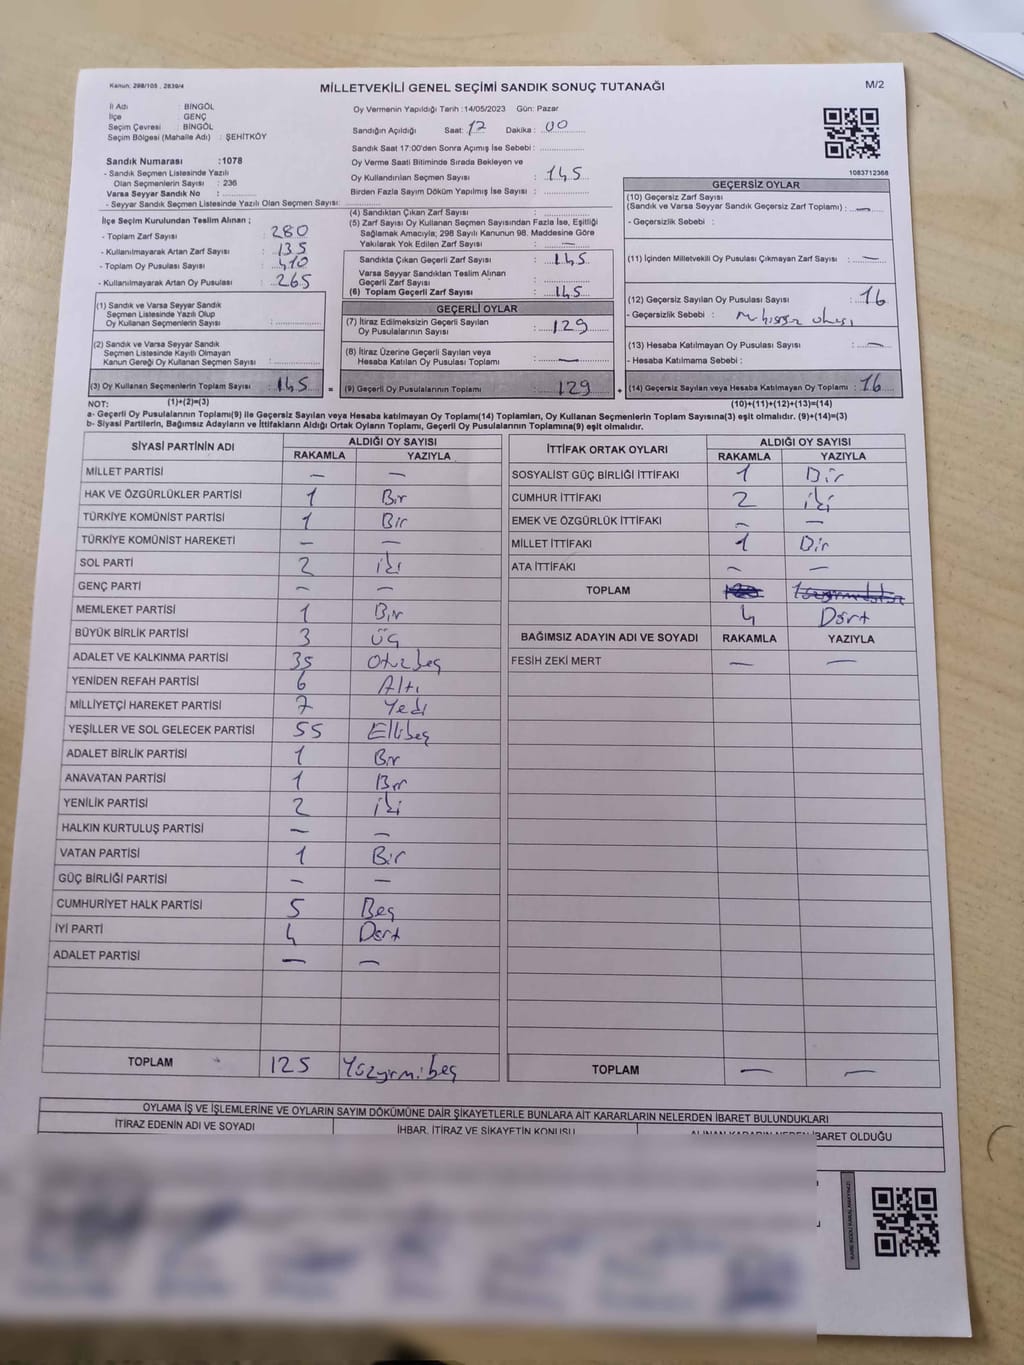 Kanun: 298/105 , 2839/4
MİLLETVEKİLİ GENEL SEÇİMİ SANDIK SONUÇ TUTANAĞI
M/2
İl Adı : BİNGÖL
İlçe : GENÇ
Seçim Çevresi : BİNGÖL
Seçim Bölgesi (Mahalle Adı) : ŞEHİTKÖY
Sandık Numarası :1078
- Sandık Seçmen Listesinde Yazılı
Olan Seçmenlerin Sayısı : 236
Varsa Seyyar Sandık No :
- Seyyar Sandık Seçmen Listesinde Yazılı Olan Seçmen Sayısı:
Oy Vermenin Yapıldığı Tarih :14/05/2023 Gün: Pazar
Sandığın Açıldığı Saat: 17 Dakika : 00
Sandık Saat 17:00'den Sonra Açımış İse Sebebi :
Oy Verme Saati Bitiminde Sırada Bekleyen ve
Oy Kullandırılan Seçmen Sayısı : 145
Birden Fazla Sayım Döküm Yapılmış İse Sayısı :
1083712368
İlçe Seçim Kurulundan Teslim Alınan ;
- Toplam Zarf Sayısı : 280
- Kullanılmayarak Artan Zarf Sayısı : 135
- Toplam Oy Pusulası Sayısı : 410
- Kullanılmayarak Artan Oy Pusulası : 265
(1) Sandık ve Varsa Seyyar Sandık
Seçmen Listesinde Yazılı Olup
Oy Kullanan Seçmenlerin Sayısı :
(2) Sandık ve Varsa Seyyar Sandık
Seçmen Listesinde Kayıtlı Olmayan
Kanun Gereği Oy Kullanan Seçmen Sayısı :
(3) Oy Kullanan Seçmenlerin Toplam Sayısı : 145 =
(4) Sandıktan Çıkan Zarf Sayısı :
(5) Zarf Sayısı Oy Kullanan Seçmen Sayısından Fazla İse, Eşitliği
Sağlamak Amacıyla; 298 Sayılı Kanunun 98. Maddesine Göre
Yakılarak Yok Edilen Zarf Sayısı : —
Sandıkta Çıkan Geçerli Zarf Sayısı : 145
Varsa Seyyar Sandıktan Teslim Alınan
Geçerli Zarf Sayısı :
(6) Toplam Geçerli Zarf Sayısı : 145
GEÇERLİ OYLAR
(7) İtiraz Edilmeksizin Geçerli Sayılan
Oy Pusulalarının Sayısı : 129
(8) İtiraz Üzerine Geçerli Sayılan veya
Hesaba Katılan Oy Pusulası Toplamı : —
(9) Geçerli Oy Pusulalarının Toplamı : 129 +
GEÇERSİZ OYLAR
(10) Geçersiz Zarf Sayısı
(Sandık ve Varsa Seyyar Sandık Geçersiz Zarf Toplamı) : —
- Geçersizlik Sebebi :
(11) İçinden Milletvekili Oy Pusulası Çıkmayan Zarf Sayısı : —
(12) Geçersiz Sayılan Oy Pusulası Sayısı : 16
- Geçersizlik Sebebi :
(13) Hesaba Katılmayan Oy Pusulası Sayısı : —
- Hesaba Katılmama Sebebi :
(14) Geçersiz Sayılan veya Hesaba Katılmayan Oy Toplamı : 16
NOT: (1)+(2)=(3) (10)+(11)+(12)+(13)=(14)
a- Geçerli Oy Pusulalarının Toplamı(9) ile Geçersiz Sayılan veya Hesaba katılmayan Oy Toplamı(14) Toplamları, Oy Kullanan Seçmenlerin Toplam Sayısına(3) eşit olmalıdır. (9)+(14)=(3)
b- Siyasi Partilerin, Bağımsız Adayların ve İttifakların Aldığı Ortak Oyların Toplamı, Geçerli Oy Pusulalarının Toplamına(9) eşit olmalıdır.
SİYASİ PARTİNİN ADI ALDIĞI OY SAYISI
RAKAMLA YAZIYLA
MİLLET PARTİSİ — —
HAK VE ÖZGÜRLÜKLER PARTİSİ 1 Bir
TÜRKİYE KOMÜNİST PARTİSİ 1 Bir
TÜRKİYE KOMÜNİST HAREKETİ — —
SOL PARTİ 2 iki
GENÇ PARTİ — —
MEMLEKET PARTİSİ 1 Bir
BÜYÜK BİRLİK PARTİSİ 3 üç
ADALET VE KALKINMA PARTİSİ 35 Otuzbeş
YENİDEN REFAH PARTİSİ 6 Altı
MİLLİYETÇİ HAREKET PARTİSİ 7 Yedi
YEŞİLLER VE SOL GELECEK PARTİSİ 55 Ellibeş
ADALET BİRLİK PARTİSİ 1 Bir
ANAVATAN PARTİSİ 1 Bir
YENİLİK PARTİSİ 2 iki
HALKIN KURTULUŞ PARTİSİ — —
VATAN PARTİSİ 1 Bir
GÜÇ BİRLİĞİ PARTİSİ — —
CUMHURİYET HALK PARTİSİ 5 Beş
İYİ PARTİ 4 Dört
ADALET PARTİSİ — —
TOPLAM 125 Yüzyirmibeş
İTTİFAK ORTAK OYLARI ALDIĞI OY SAYISI
RAKAMLA YAZIYLA
SOSYALİST GÜÇ BİRLİĞİ İTTİFAKI 1 Bir
CUMHUR İTTİFAKI 2 iki
EMEK VE ÖZGÜRLÜK İTTİFAKI — —
MİLLET İTTİFAKI 1 Bir
ATA İTTİFAKI — —
TOPLAM
4 Dört
BAĞIMSIZ ADAYIN ADI VE SOYADI RAKAMLA YAZIYLA
FESİH ZEKİ MERT — —
TOPLAM — —
OYLAMA İŞ VE İŞLEMLERİNE VE OYLARIN SAYIM DÖKÜMÜNE DAİR ŞİKAYETLERLE BUNLARA AİT KARARLARIN NELERDEN İBARET BULUNDUKLARI
İTİRAZ EDENİN ADI VE SOYADI İHBAR, İTİRAZ VE ŞİKAYETİN KONUSU ALINAN KARARIN NEDEN İBARET OLDUĞU